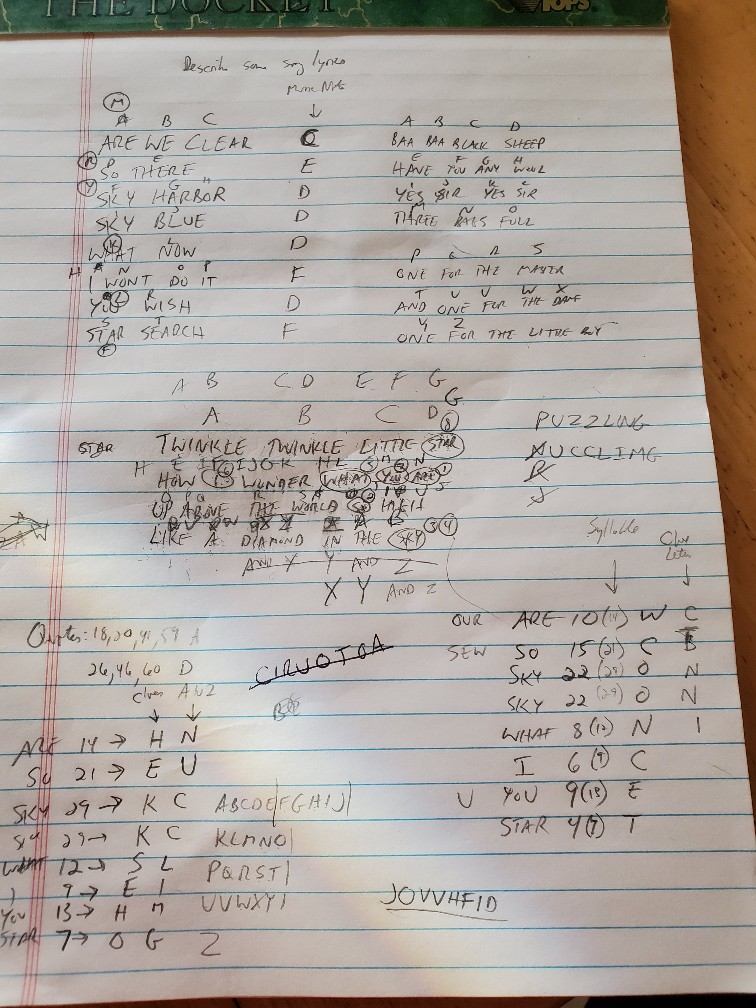 THE DOCKET
TOPS
Describe some song lyrics
Music Note
M
A B C
ARE WE CLEAR C
SO THERE E
SKY HARBOR D
SKY BLUE D
WHAT NOW D
I WONT DO IT F
YOU WISH D
STAR SEARCH F
A B C D
BAA BAA BLACK SHEEP
E F G H
HAVE YOU ANY WOOL
YES SIR YES SIR
THREE BAGS FULL
P Q R S
ONE FOR THE MASTER
T U V W X
AND ONE FOR THE DAME
Y Z
ONE FOR THE LITTLE BOY
A B C D E F G
G
A B C D
STAR TWINKLE TWINKLE LITTLE STAR
HOW I WONDER WHAT YOU ARE
UP ABOVE THE WORLD SO HIGH
LIKE A DIAMOND IN THE SKY
AND X Y AND Z
X Y AND Z
PUZZLING
AUCCLIMG
Syllable
Clue Letter
OUR ARE 10(14) W C
SEW SO 15(21) C B
SKY 22(29) O N
SKY 22(29) O N
WHAT 8(12) N I
I 6(9) C
U YOU 9(13) E
STAR 4(7) T
Quotes: 18,20,41,59 A
26,46,60 D
Clues A@Z
ARE 14→ H N
SO 21→ E U
SKY 29→ K C
SKY 29→ K C
WHAT 12→ S L
I 9→ E I
YOU 13→ H M
STAR 7→ O G
CIRUOTOA
ABCDE|FGHIJ|
KLMNO|
PQRST|
UVWXY|
Z
JOVVHFID